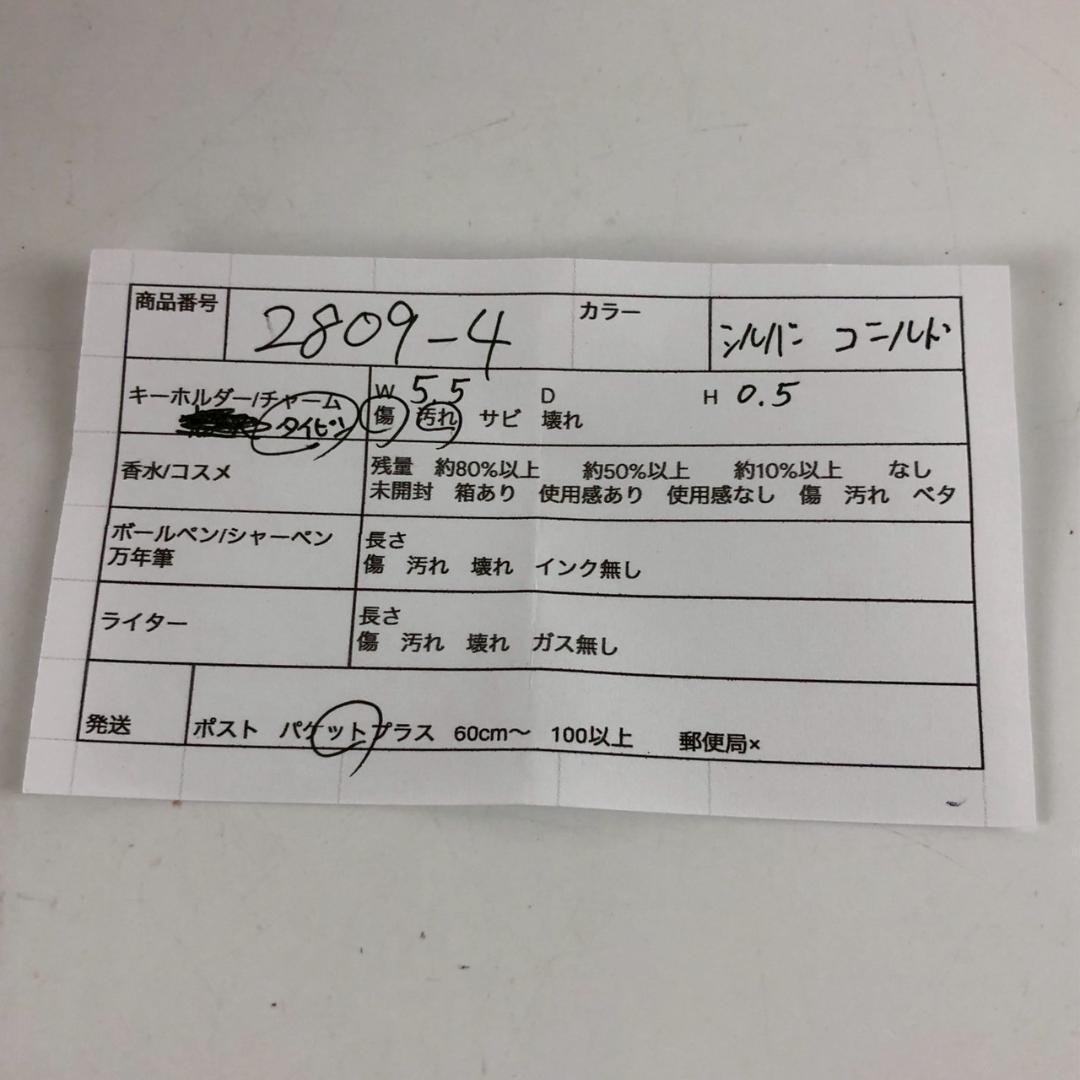 商品番号 2809-4 カラー シルバー ゴールド
キーホルダー/チャーム W 5.5 D H 0.5
タイピン 傷 汚れ サビ 壊れ
香水/コスメ 残量 約80%以上 約50%以上 約10%以上 なし
未開封 箱あり 使用感あり 使用感なし 傷 汚れ ベタ
ボールペン/シャーペン 長さ
万年筆 傷 汚れ 壊れ インク無し
ライター 長さ
傷 汚れ 壊れ ガス無し
発送 ポスト パケットプラス 60cm〜 100以上 郵便局×